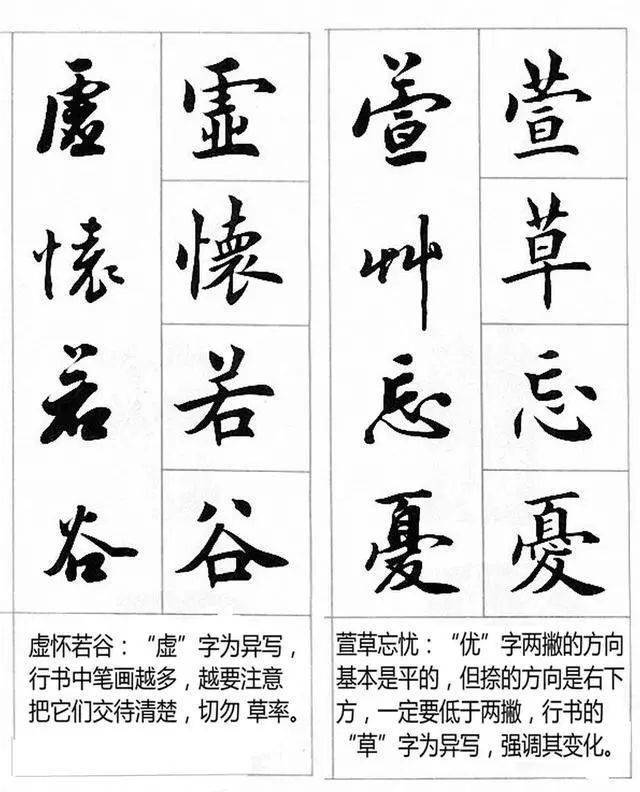 虛懷若谷
虛懷若谷
虚怀若谷：“虚”字为异写，
行书中笔画越多，越要注意
把它们交待清楚，切勿 草率。
萱艸忘憂
萱草忘憂
萱草忘忧：“优”字两撇的方向
基本是平的，但捺的方向是右下
方，一定要低于两撇，行书的
“草”字为异写，强调其变化。